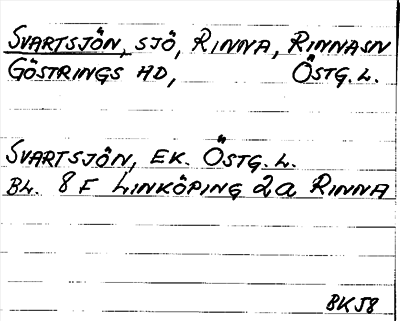 SVARTSJÖN, SJÖ, RINNA, RINNASN
GÖSTRINGS HD, ÖSTG. L.
SVARTSJÖN, EK. ÖSTG. L.
BL. 8 F LINKÖPING 2a RINNA
BK58